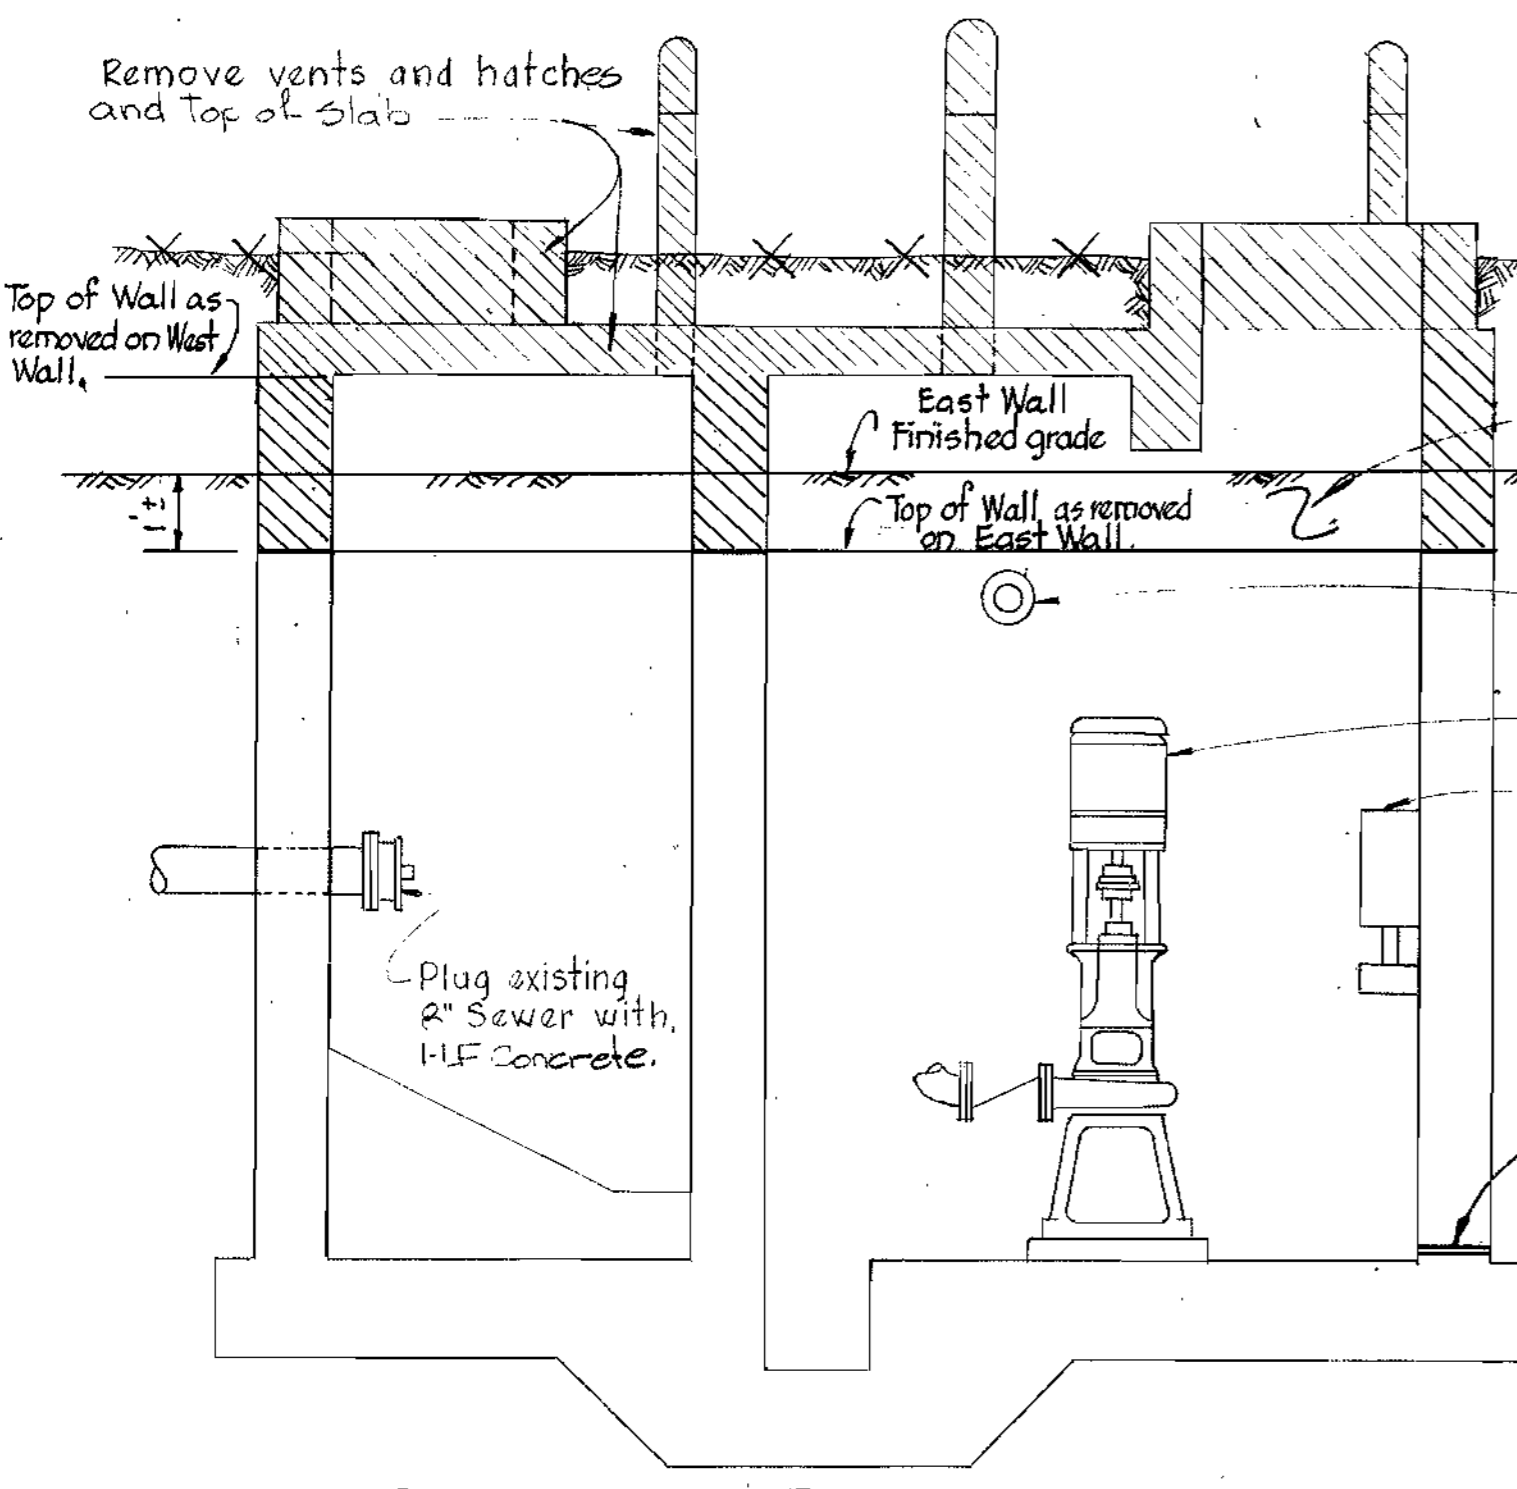 Remove vents and hatches
and Top of Slab
Top of Wall as
removed on West
Wall.
East Wall
Finished grade
1'±
Top of Wall as removed
on East Wall.
Plug existing
8" Sewer with
Concrete.